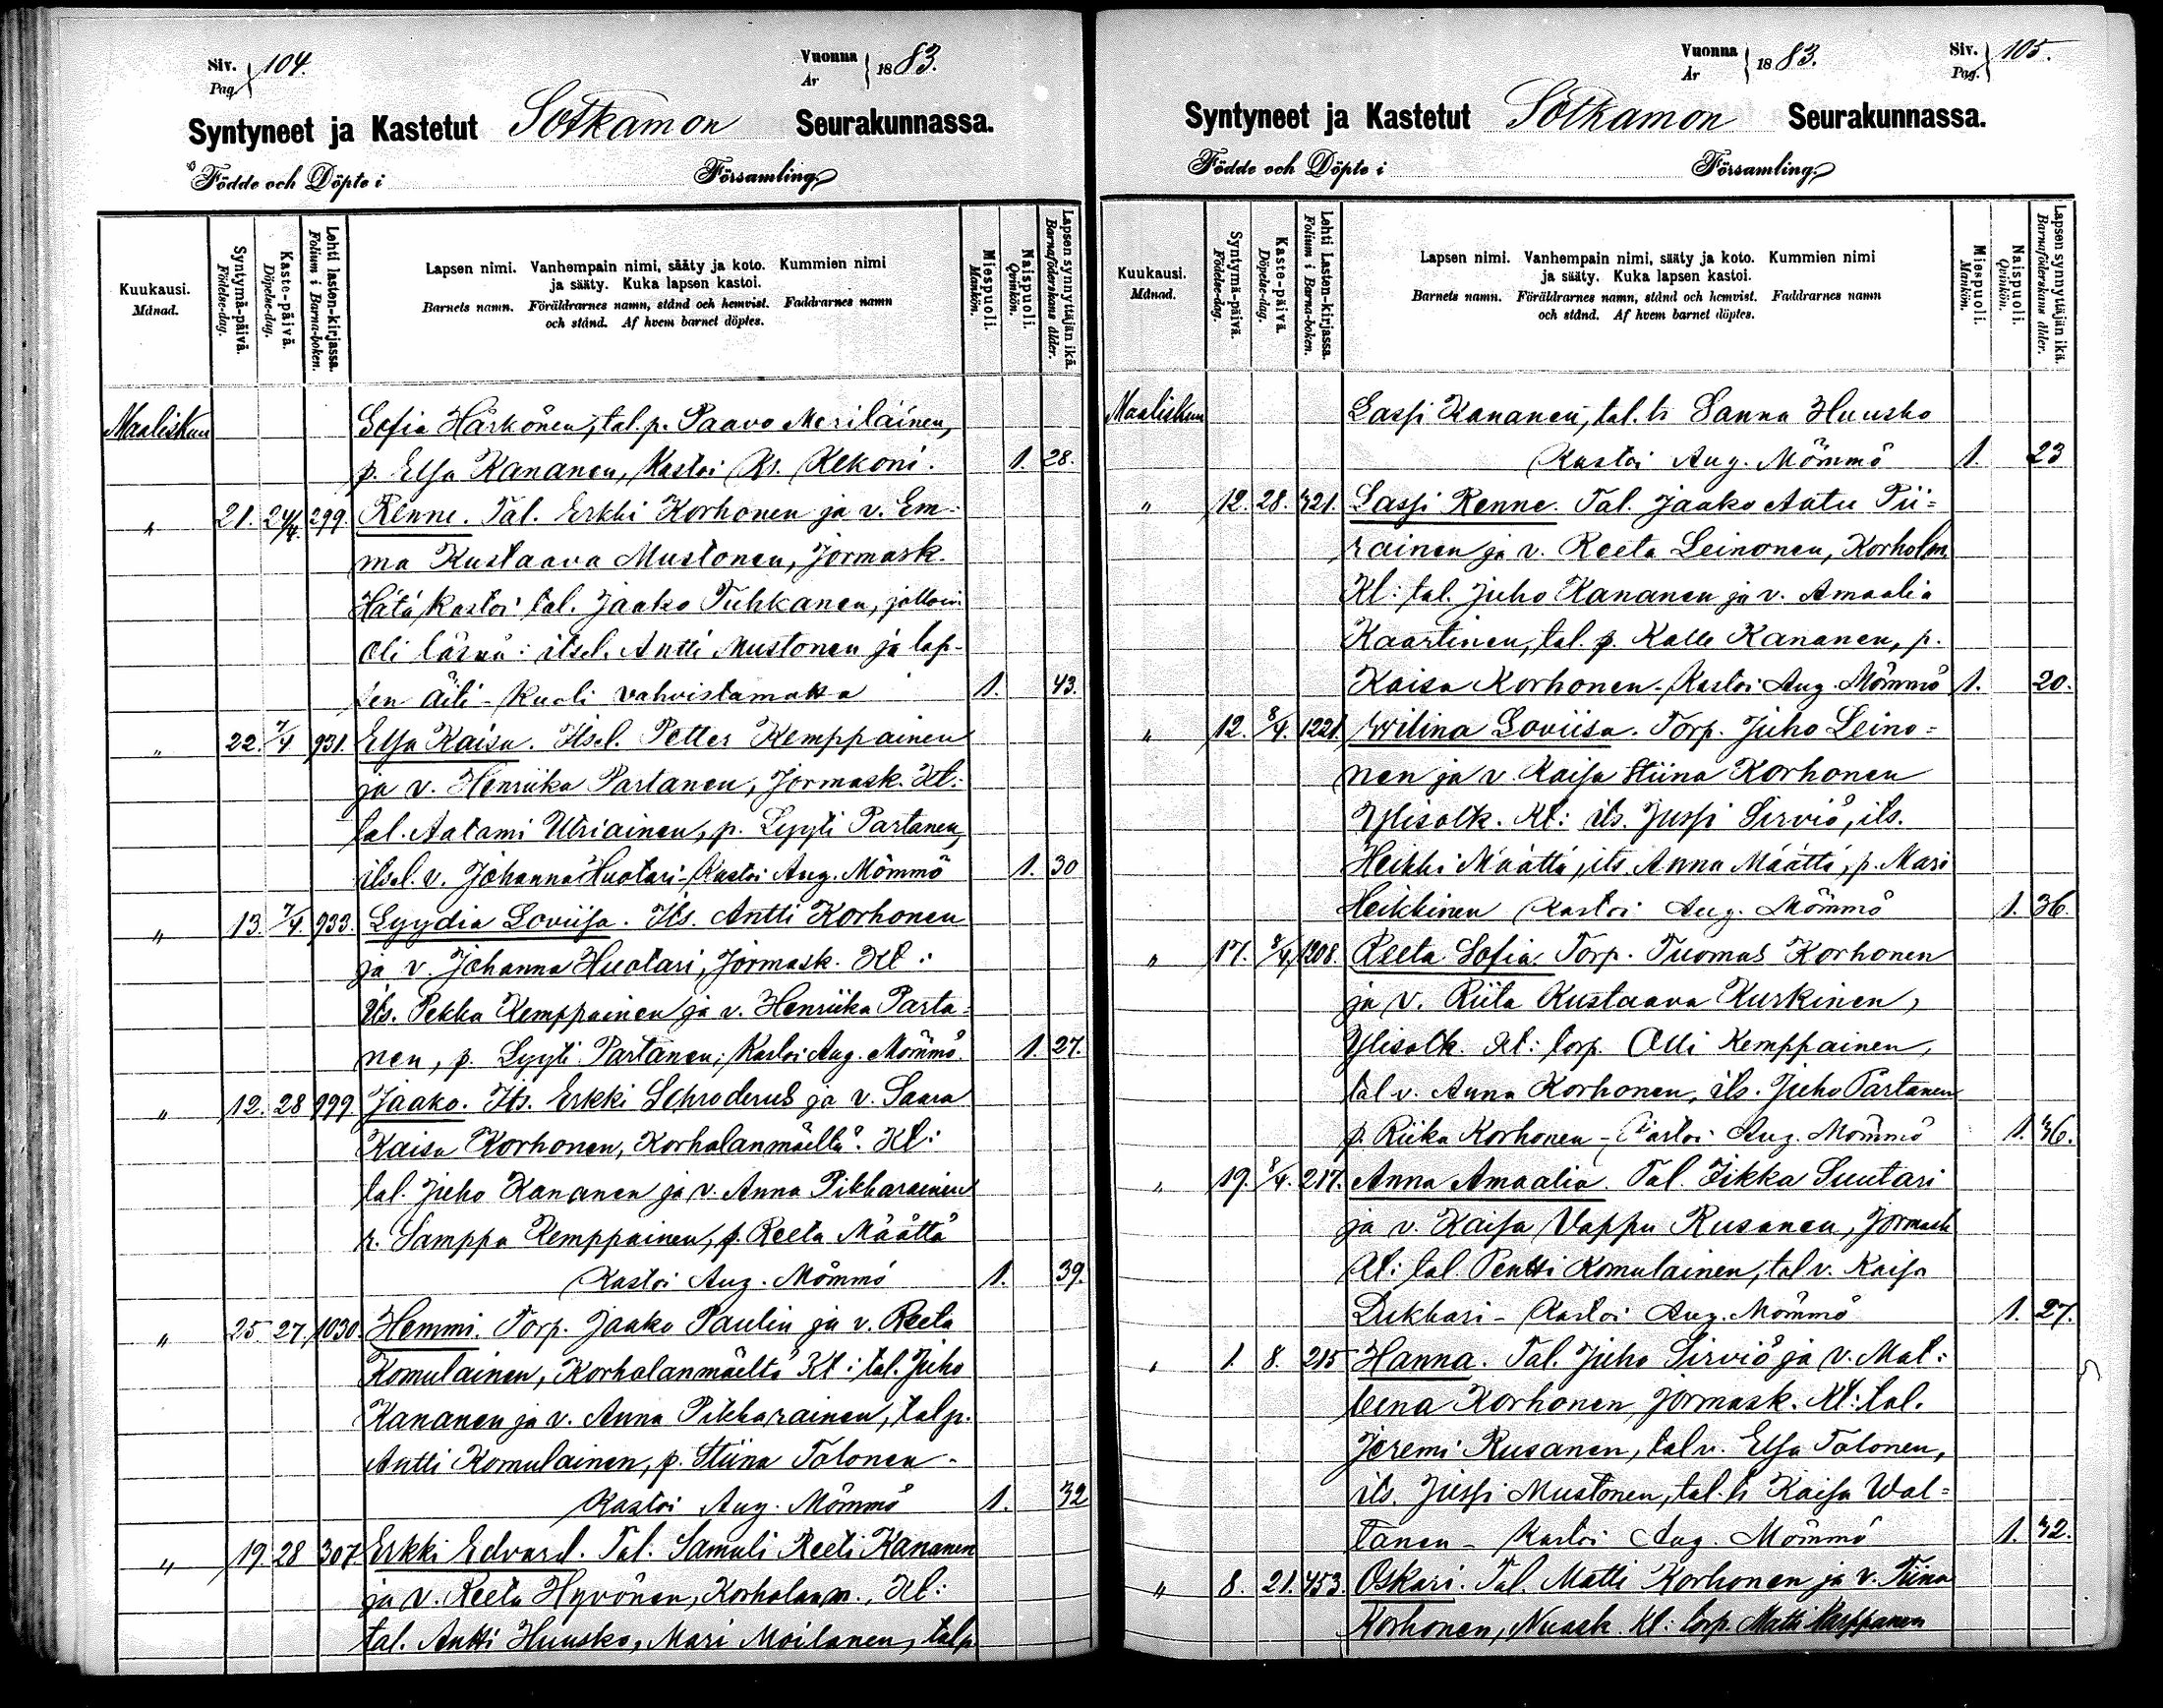 Siv. Pag. 104.
Vuonna År 1883.
Syntyneet ja Kastetut Sotkamon Seurakunnassa.
Födde och Döpte i Församling
Kuukausi. Månad.
Syntymä-päivä. Födelse-dag.
Kaste-päivä. Döpelse-dag.
Lehti lasten-kirjassa. Folium i Barna-boken.
Lapsen nimi. Vanhempain nimi, sääty ja koto. Kummien nimi
ja sääty. Kuka lapsen kastoi.
Barnets namn. Föräldrarnes namn, stånd och hemvist. Faddrarnes namn
och stånd. Af hvem barnet döptes.
Miespuoli. Mankön.
Naispuoli. Qvinkön.
Lapsen synnyttäjän ikä. Barnaföderskans ålder.
Maaliskuu Sofia Härkönen, tal. p. Paavo Meriläinen,
p. Elsa Kananen, Kastoi Ks. Rekoni. 1. 28.
" 21. 24/4. 299. Renne. Tal. Erkki Korhonen ja v. Em-
ma Kustaava Mustonen, Jormask.
Hätäkastoi tal. Jaako Tuhkanen, jolloin
oli läsnä: itsel. Antti Mustonen ja lap-
sen äiti - Kuoli vahvistamatta 1. 43.
" 22. 7/4 931. Elsa Kaisa. Itsel. Petter Kemppainen
ja v. Henriika Partanen, Jormask. Kt:
tal. Aatami Utriainen, p. Lyyti Partanen,
itsel. v. Johanna Huotari - Kastoi Aug. Mömmö 1. 30
" 13. 7/4. 933. Lyydia Loviisa. Its. Antti Korhonen
ja v. Johanna Huotari, Jormask. Kt:
Its. Pekka Kemppainen ja v. Henriika Parta-
nen, p. Lyyti Partanen; Kastoi Aug. Mömmö. 1. 27.
" 12. 28 999 Jaako. Its. Erkki Schroderus ja v. Saara
Kaisa Korhonen, Korholanmäeltä. Kt:
tal. Juho Kananen ja v. Anna Pikkarainen
r. Samppa Kemppainen, p. Reeta Määttä
Kastoi Aug. Mömmö 1. 39.
" 25 27. 1030. Hemmi. Torp. Jaako Paulin ja v. Reeta
Komulainen, Korholanmäeltä Kt: tal. Juho
Kananen ja v. Anna Pikkarainen, tal p.
Antti Komulainen, p. Stiina Tolonen -
Kastoi Aug. Mömmö 1. 32
" 19 28 307 Erkki Edvard. Tal. Samuli Reeti Kananen
ja v. Reeta Hyvönen, Korholanm., Kt:
tal. Antti Huusko, Mari Moilanen, tal p
Vuonna År 1883.
Siv. Pag. 105.
Syntyneet ja Kastetut Sotkamon Seurakunnassa.
Födde och Döpte i Församling
Kuukausi. Månad.
Syntymä-päivä. Födelse-dag.
Kaste-päivä Döpelse-dag.
Lehti Lasten-kirjassa. Folium i Barna-boken.
Lapsen nimi. Vanhempain nimi, sääty ja koto. Kummien nimi
ja sääty. Kuka lapsen kastoi.
Barnets namn. Föräldrarnes namn, stånd och hemvist. Faddrarnes namn
och stånd. Af hvem barnet döptes.
Miespuoli. Mankön.
Naispuoli. Qvinkön.
Lapsen synnyttäjän ikä. Barnaföderskans ålder.
Maaliskuu Lassi Kananen, tal. tr Sanna Huusko
Kastoi Aug. Mömmö 1. 23
" 12. 28. 321. Lassi Renne. Tal. Jaako Aatu Pii-
rainen ja v. Reeta Leinonen, Korholm
Kt: tal. Juho Kananen ja v. Amaalia
Kaartinen, tal. p. Kalle Kananen, p.
Kaisa Korhonen - Kastoi Aug. Mömmö 1. 20.
" 12. 8/4. 1221. Wilina Loviisa. Torp. Juho Leino-
nen ja v. Kaisa Stiina Korhonen
Ylisotk. Kt: its. Jussi Sirviö, its.
Heikki Määttä, its. Anna Määttä, p. Mari
Heikkinen Kastoi Aug. Mömmö 1. 36.
" 17. 8/4. 1208. Reeta Sofia. Torp. Tuomas Korhonen
ja v. Riita Kustaava Kurkinen,
Ylisotk. Kt: torp. Olli Kemppainen,
tal v. Anna Korhonen, its. Juho Partanen
p. Riika Korhonen - Kastoi Aug. Mömmö 1. 36.
" 19. 8/4. 217. Anna Amaalia. Tal. Iikka Suutari
ja v. Kaisa Vappu Rusanen, Jormask
Kt: tal. Pentti Komulainen, tal v. Kaisa
Dukkari - Kastoi Aug. Mömmö 1. 27.
" 1. 8. 215 Hanna. Tal. Juho Sirviö ja v. Mat-
leena Korhonen Jormask. Kt: tal.
Jeremi Rusanen, tal v. Elsa Tolonen,
its. Jussi Mustonen, tal. tr Kaisa Wal-
tanen - Kastoi Aug. Mömmö 1. 32.
" 8. 21. 453. Oskari. Tal. Matti Korhonen ja v. Tiina
Korhonen, Nuask. Kt: torp. Matti